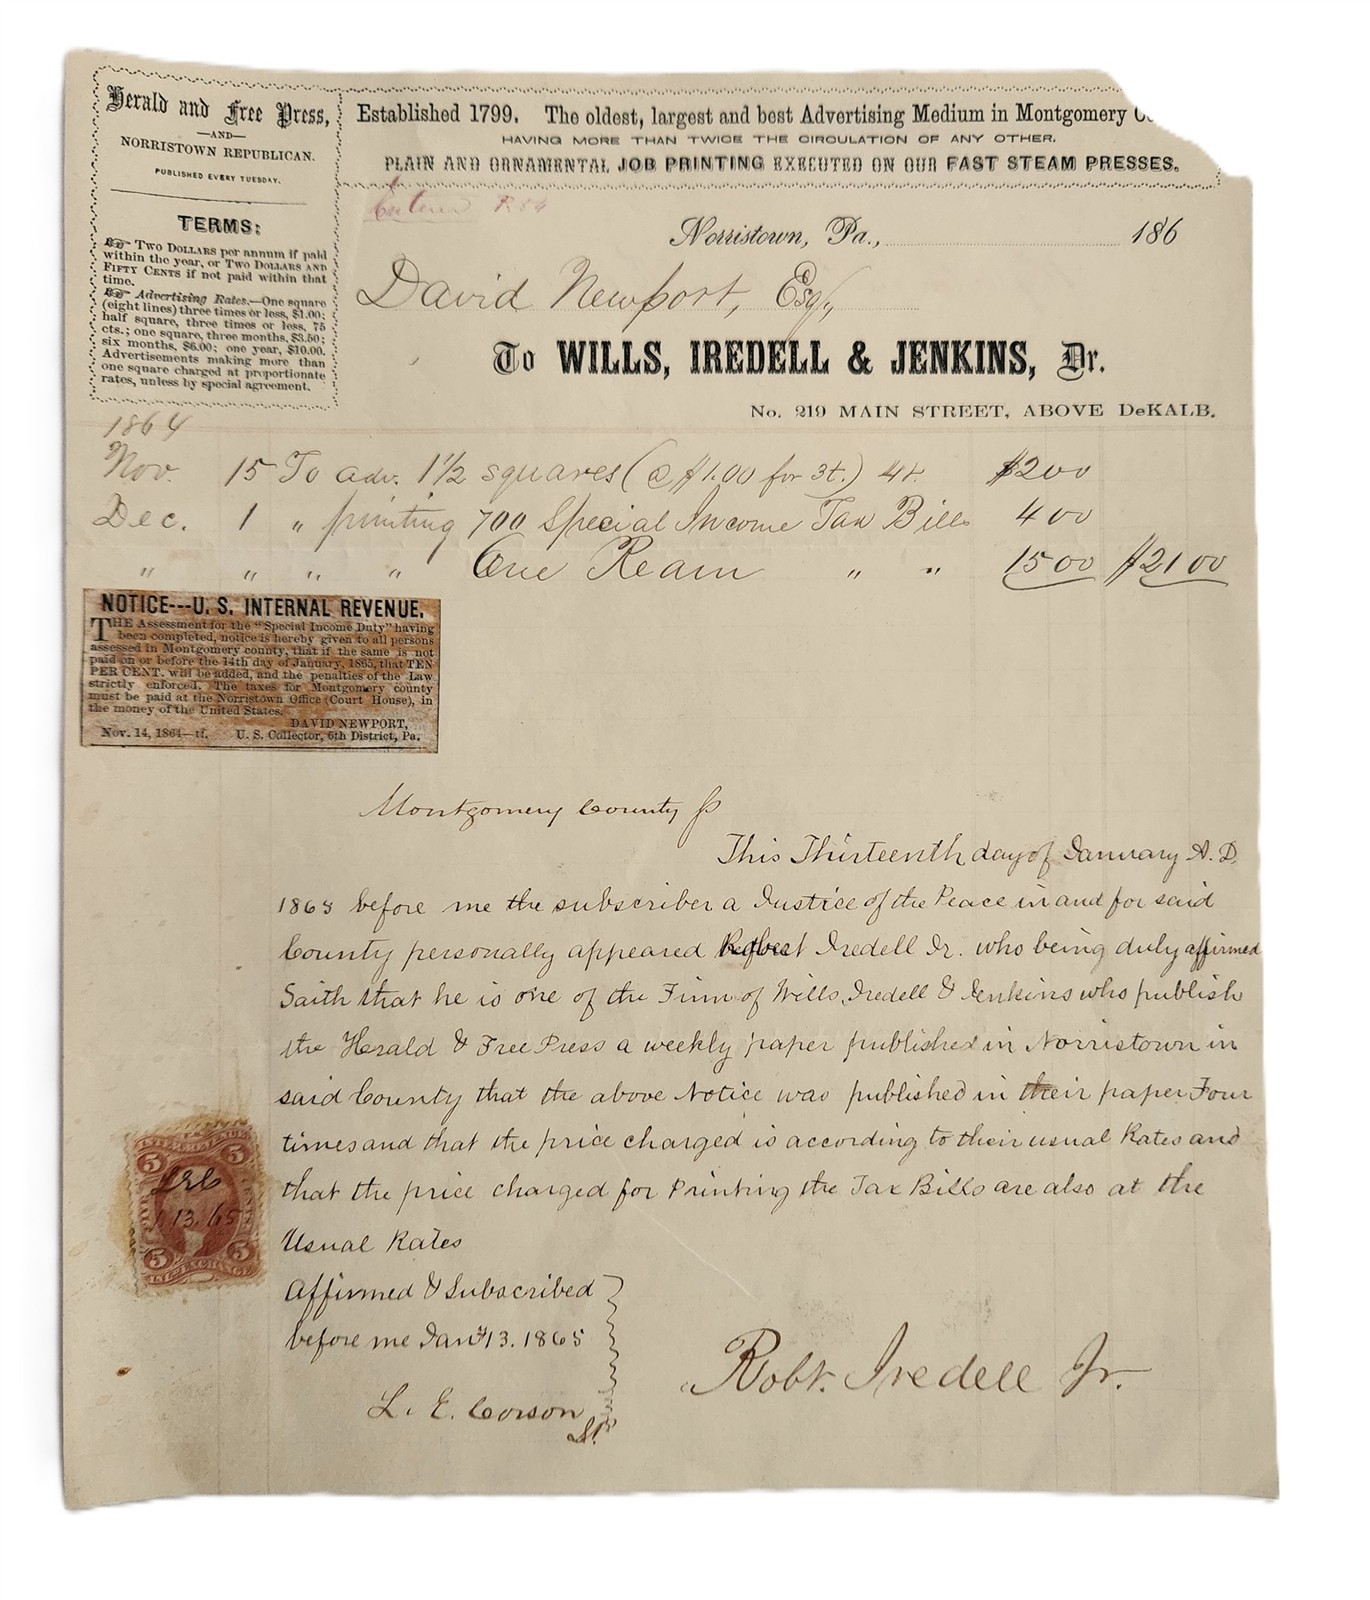 Herald and Free Press,
—AND—
NORRISTOWN REPUBLICAN.
PUBLISHED EVERY TUESDAY.
TERMS:
TWO DOLLARS per annum if paid
within the year, or TWO DOLLARS AND
FIFTY CENTS if not paid within that
time.
Advertising Rates.—One square
(eight lines) three times or less, $1.00;
half square, three times or less, 75
cts.; one square, three months, $3.50;
six months, $6.00; one year, $10.00.
Advertisements making more than
one square charged at proportionate
rates, unless by special agreement.
Established 1799. The oldest, largest and best Advertising Medium in Montgomery
HAVING MORE THAN TWICE THE CIRCULATION OF ANY OTHER.
PLAIN AND ORNAMENTAL JOB PRINTING EXECUTED ON OUR FAST STEAM PRESSES.
Norristown, Pa., 186
David Newport, Esq.,
To WILLS, IREDELL & JENKINS, Dr.
No. 219 MAIN STREET, ABOVE DeKALB.
1864
Nov. 15 To adv. 1½ squares (@ $1.00 for 3t.) 4t. $2 00
Dec. 1 " printing 700 Special Income Tax Bills 4 00
" " " " One Ream " " 15 00 $21 00
NOTICE---U. S. INTERNAL REVENUE.
THE Assessment for the "Special Income Duty" having
been completed, notice is hereby given to all persons
assessed in Montgomery county, that if the same is not
paid on or before the 14th day of January, 1865, that TEN
PER CENT. will be added, and the penalties of the Law
strictly enforced. The taxes for Montgomery county
must be paid at the Norristown Office (Court House), in
the money of the United States.
DAVID NEWPORT,
Nov. 14, 1864—tf. U. S. Collector, 6th District, Pa.
Montgomery County ss
This Thirteenth day of January A. D.
1865 before me the subscriber a Justice of the Peace in and for said
County personally appeared Robert Iredell Jr. who being duly affirmed
Saith that he is one of the Firm of Wills, Iredell & Jenkins who publish
the Herald & Free Press a weekly paper published in Norristown in
said County that the above Notice was published in their paper Four
times and that the price charged is according to their usual Rates and
that the price charged for Printing the Tax Bills are also at the
Usual Rates
Affirmed & Subscribed
before me Jany 13. 1865
L. E. Corson
Robt. Iredell Jr.
INTER. REVENUE
5 5
LEC
1. 13. 65
FIVE CENTS
5 5
INL. EXCHANGE